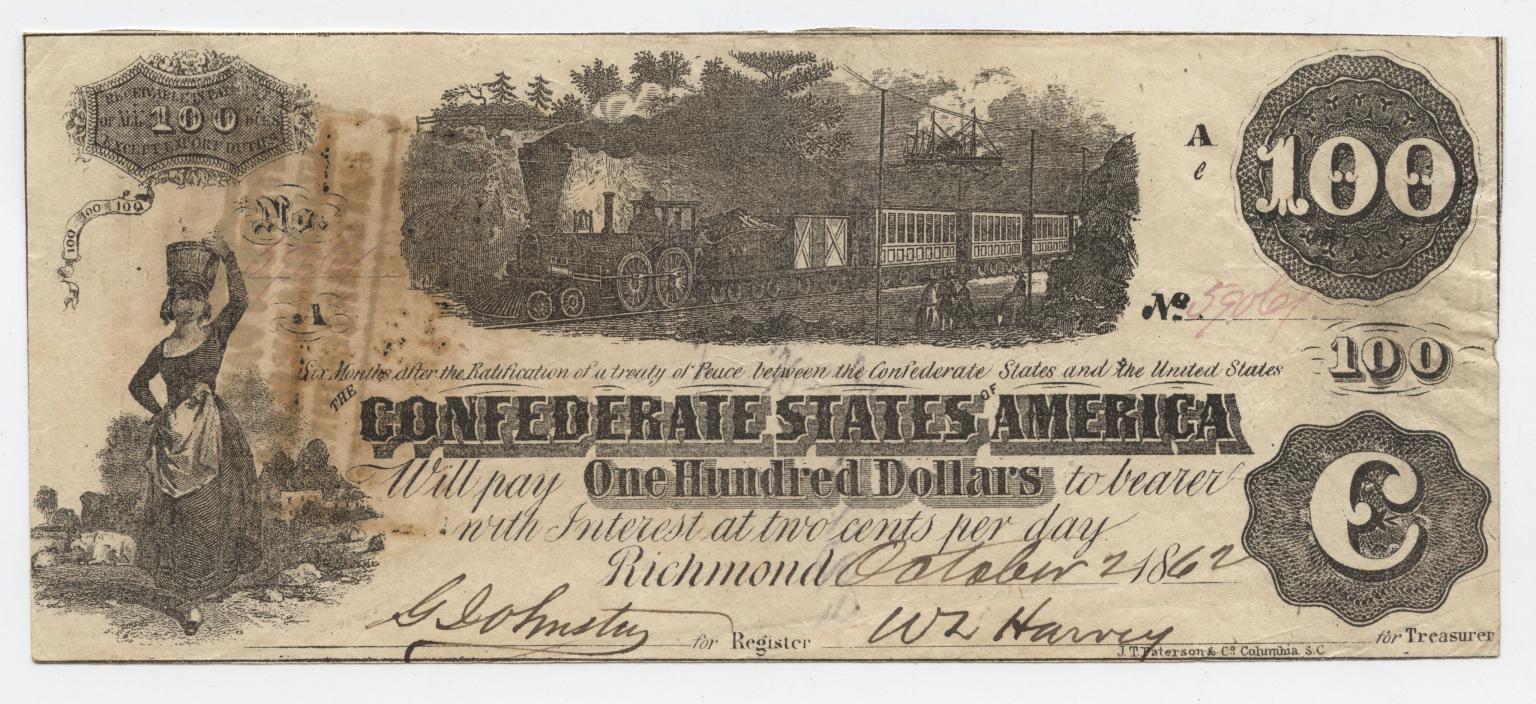 RECEIVABLE IN PAYMENT
OF ALL 100 DUES
EXCEPT EXPORT DUTIES
100 100 100
No.
A
A
e
100
No. 59061
100
Six Months after the Ratification of a treaty of Peace between the Confederate States and the United States
THE CONFEDERATE STATES OF AMERICA
Will pay One Hundred Dollars to bearer
with Interest at two cents per day
Richmond October 2 1862
C
G Johnston for Register
W L Harvey for Treasurer
J. T. Paterson & Co. Columbia S.C.